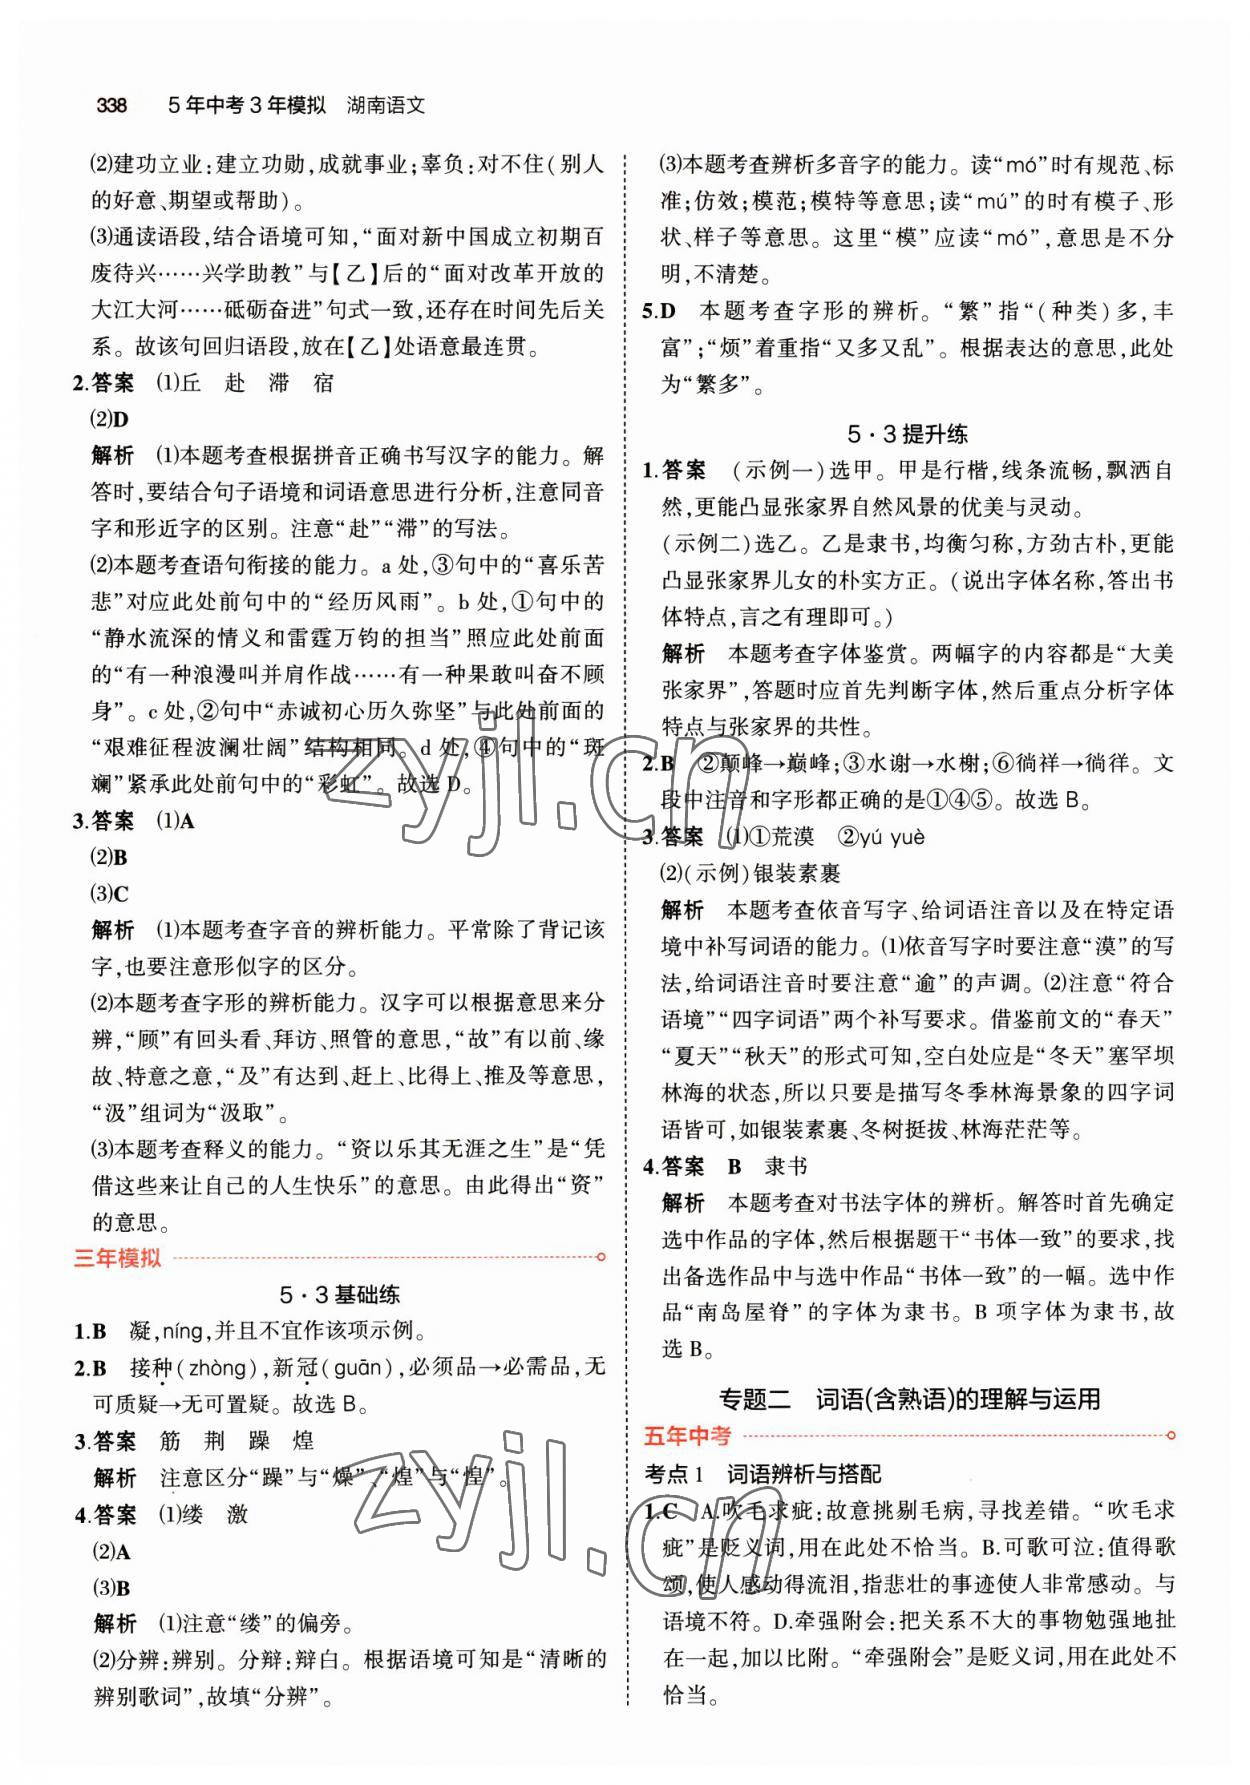 338 5年中考3年模拟 湖南语文
(2)建功立业:建立功勋,成就事业;辜负:对不住(别人
的好意、期望或帮助)。
(3)通读语段,结合语境可知,“面对新中国成立初期百
废待兴……兴学助教”与【乙】后的“面对改革开放的
大江大河……砥砺奋进”句式一致,还存在时间先后关
系。故该句回归语段,放在【乙】处语意最连贯。
2.答案 (1)丘 赴 滞 宿
(2)D
解析 (1)本题考查根据拼音正确书写汉字的能力。解
答时,要结合句子语境和词语意思进行分析,注意同音
字和形近字的区别。注意“赴”“滞”的写法。
(2)本题考查语句衔接的能力。a处,③句中的“喜乐苦
悲”对应此处前句中的“经历风雨”。b处,①句中的
“静水流深的情义和雷霆万钧的担当”照应此处前面
的“有一种浪漫叫并肩作战……有一种果敢叫奋不顾
身”。c处,②句中“赤诚初心历久弥坚”与此处前面的
“艰难征程波澜壮阔”结构相同。d处,④句中的“斑
斓”紧承此处前句中的“彩虹”。故选D。
3.答案 (1)A
(2)B
(3)C
解析 (1)本题考查字音的辨析能力。平常除了背记该
字,也要注意形似字的区分。
(2)本题考查字形的辨析能力。汉字可以根据意思来分
辨,“顾”有回头看、拜访、照管的意思,“故”有以前、缘
故、特意之意,“及”有达到、赶上、比得上、推及等意思,
“汲”组词为“汲取”。
(3)本题考查释义的能力。“资以乐其无涯之生”是“凭
借这些来让自己的人生快乐”的意思。由此得出“资”
的意思。
三年模拟
5·3基础练
1.B 凝,níng,并且不宜作该项示例。
2.B 接种(zhòng),新冠(guān),必须品→必需品,无
可质疑→无可置疑。故选B。
3.答案 筋 荆 躁 煌
解析 注意区分“躁”与“燥”、“煌”与“惶”。
4.答案 (1)缕 激
(2)A
(3)B
解析 (1)注意“缕”的偏旁。
(2)分辨:辨别。分辩:辩白。根据语境可知是“清晰的
辨别歌词”,故填“分辨”。
(3)本题考查辨析多音字的能力。读“mó”时有规范、标
准;仿效;模范;模特等意思;读“mú”的时有模子、形
状、样子等意思。这里“模”应读“mó”,意思是不分
明,不清楚。
5.D 本题考查字形的辨析。“繁”指“(种类)多,丰
富”;“烦”着重指“又多又乱”。根据表达的意思,此处
为“繁多”。
5·3提升练
1.答案 (示例一)选甲。甲是行楷,线条流畅,飘洒自
然,更能凸显张家界自然风景的优美与灵动。
(示例二)选乙。乙是隶书,均衡匀称,方劲古朴,更能
凸显张家界儿女的朴实方正。(说出字体名称,答出书
体特点,言之有理即可。)
解析 本题考查字体鉴赏。两幅字的内容都是“大美
张家界”,答题时应首先判断字体,然后重点分析字体
特点与张家界的共性。
2.B ②颠峰→巅峰;③水谢→水榭;⑥徜祥→徜徉。文
段中注音和字形都正确的是①④⑤。故选B。
3.答案 (1)①荒漠 ②yú yuè
(2)(示例)银装素裹
解析 本题考查依音写字、给词语注音以及在特定语
境中补写词语的能力。(1)依音写字时要注意“漠”的写
法,给词语注音时要注意“逾”的声调。(2)注意“符合
语境”“四字词语”两个补写要求。借鉴前文的“春天”
“夏天”“秋天”的形式可知,空白处应是“冬天”塞罕坝
林海的状态,所以只要是描写冬季林海景象的四字词
语皆可,如银装素裹、冬树挺拔、林海茫茫等。
4.答案 B 隶书
解析 本题考查对书法字体的辨析。解答时首先确定
选中作品的字体,然后根据题干“书体一致”的要求,找
出备选作品中与选中作品“书体一致”的一幅。选中作
品“南岛屋脊”的字体为隶书。B项字体为隶书,故
选B。
专题二 词语(含熟语)的理解与运用
五年中考
考点1 词语辨析与搭配
1.C A.吹毛求疵:故意挑剔毛病,寻找差错。“吹毛求
疵”是贬义词,用在此处不恰当。B.可歌可泣:值得歌
颂,使人感动得流泪,指悲壮的事迹使人非常感动。与
语境不符。D.牵强附会:把关系不大的事物勉强地扯
在一起,加以比附。“牵强附会”是贬义词,用在此处不
恰当。
zyjl.cn
zyjl.cn